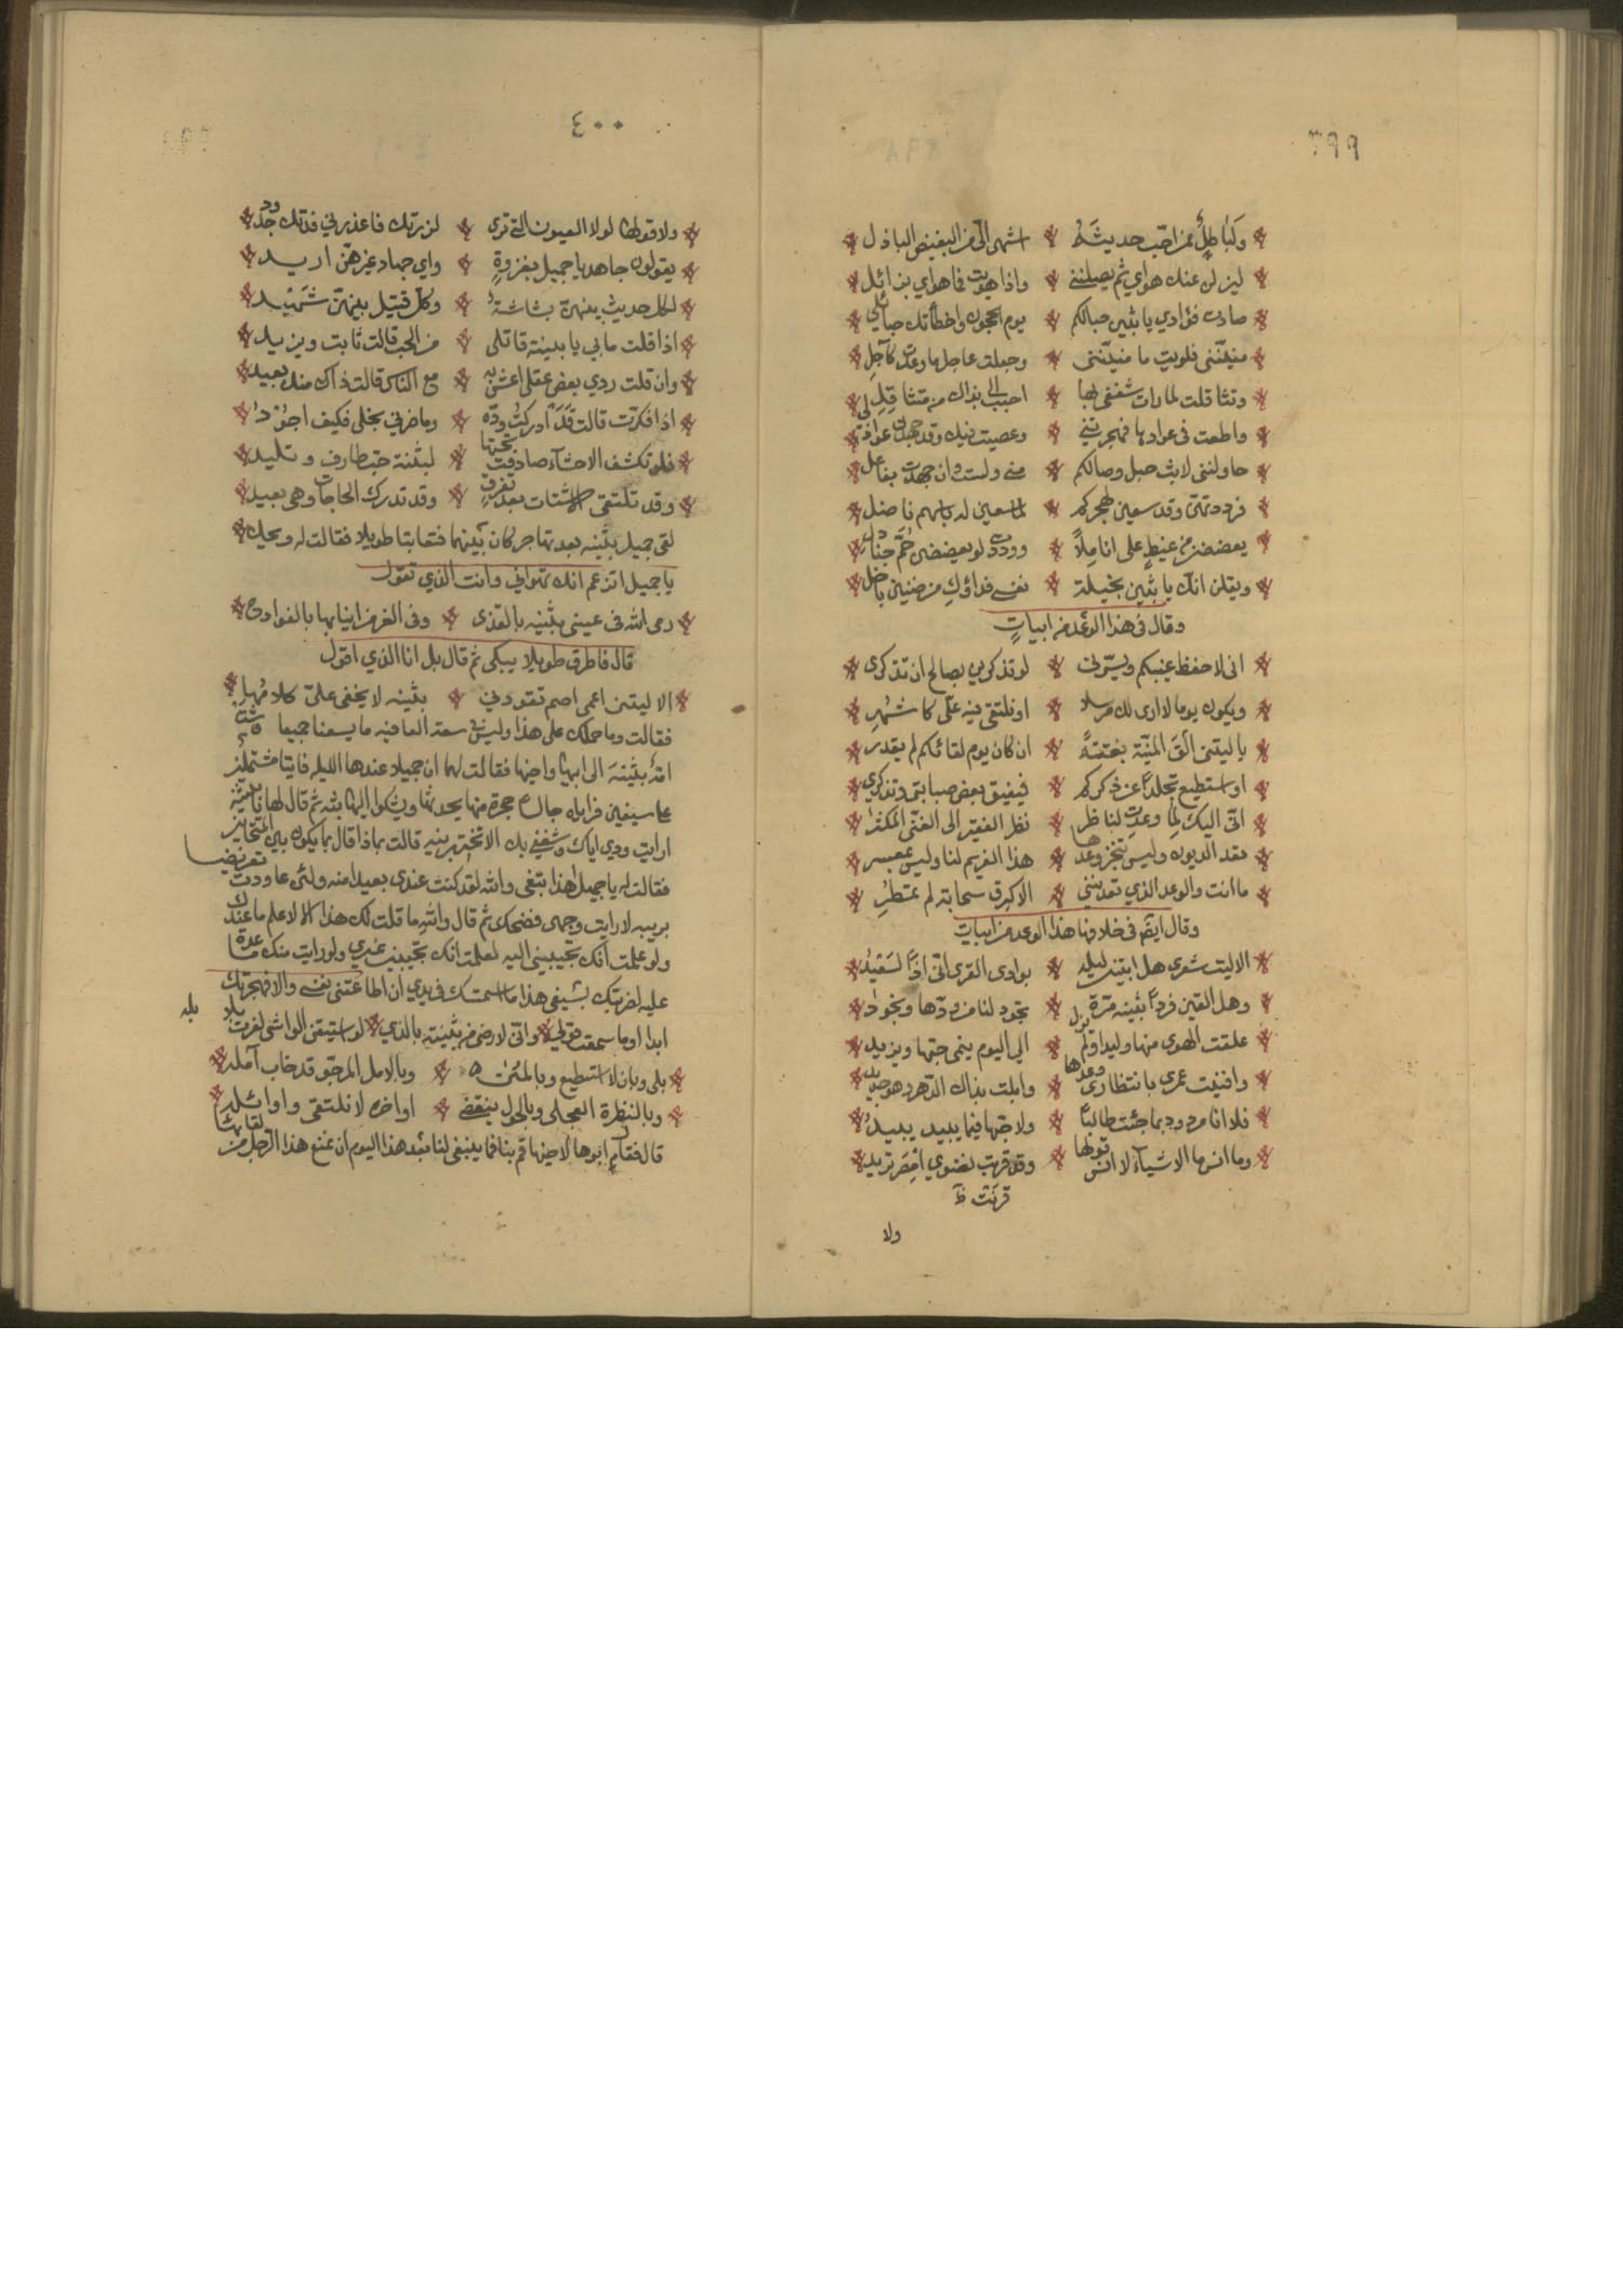 ٣٩٩
ولباطل ممن احب حديثه اشهى الي من البغيض الباذل
ليزلن عنك هواي ثم يصلنني واذا هويت فما هواي بزائل
صادت فؤادي يا بثين حبالكم يوم الحجون واخطأتك حبائلي
منيتنى فلويت ما منيتنى وجعلت عاجل ما وعدت كآجل
وتثاقلت لما رات شغفى بها احبب الي بذاك من متثاقل
واطعت فى عواذلا فهجرتني وعصيت فيك وقد جهدن عواذلي
حاولننى لابت حبل وصالكم منى ولست وان جهدن بفاعل
فرددتهن وقد سعين بهجركم لما سعين له بافهم ناصل
يعضضن من غيظ على اناملا ووددت لو يعضضن صم جنادل
ويقلن انك يا بثين بخيلة نفسى فداؤك من ضنين باخل
وقال فى هذا الوعد من ابيات
انى لاحفظ غيبكم ويسرنى لو تذكرين بصالح ان تذكرى
ويكون يوما لا ارى لك مرسلا او نلتقى فيه على كاشهر
يا ليتنى القى المنية بغتة ان كان يوم لقائكم لم يقدر
او استطيع تجلدا عن ذكركم فيفيق بعض صبابتى وتذكري
انى اليك لما وعدت لناظر نظر الفقير الى الغنى المكثر
تقد الديون وليس تنجز وعدها هذا الغريم لنا وليس بمعسر
ما انت والوعد الذي تعديننى الا كبرق سحابة لم تمطر
وقال ايضا فى خلافها هذا الوعد من ابيات
الا ليت شعرى هل ابيتن ليلة بوادى القرى انى اذا لسعيد
وهل القين فردا بثينة مرة تجود لنا من ودها ونجود
علقت الهوى منها وليدا ولم يزل الى اليوم ينمى حبها ويزيد
وافنيت عمرى بانتظارى وعدها وابلت بذاك الدهر وهو جديد
فلا انا مردود بما جئت طالبا ولا حبها فيما يبيد يبيد
وما انس ما الاشيآء لا انس قولها وقد قربت نضوي امصر تريد
قربت
ولا
٤٠٠
ولا قولها لولا العيون التى ترى لزرتك فاعذرني فدتك جدود
يقولون جاهد يا جميل بغزوة واي جهاد غيرهن اريد
لكل حديث بينهن بشاشة وكل قتيل بينهن شهيد
اذا قلت ما بي يا بثينة قاتلى من الحب قالت ثابت ويزيد
وان قلت ردي بعض عقلى اعش به مع الناس قالت ذاك منك بعيد
اذا فكرت قالت قد ادركت وده وما ضرني بخلى فكيف اجود
فلو تكشف الاحشآء صادفت تحتها لبثنة حب طارف وتليد
وقد تلتقى الاشتات بعد تفرق وقد تدرك الحاجات وهى بعيد
لقى جميل بثينه بعد تهاجر كان بينهما فتعاتبا طويلا فقالت له ويحك
يا جميل اتزعم انك تهواني وانت الذي تقول
رمى الله فى عينى بثينه بالقذى وفى الغر من انيابها بالقوادح
قال فاطرق طويلا يبكى ثم قال بل انا الذي اقول
الا ليتنى اعمى اصم تقودني بثينه لا يخفى على كلامها
فقالت وما حملك على هذا وليس فى سعة العافيه ما يسعنا جميعا فسعت
امة بثينة الى ابيها واخيها فقالت لهما ان جميلا عندها الليله فاتيا مشتملين
على سيفين فراياه جالسا حجرة منها يحدثها ويشكوا اليها بثه ثم قال لها يا بثينة
ارايت ودي اياك وشغفى بك الا تجزينيه قالت بماذا قال بما يكون بين المتحابين
فقالت له يا جميل اهذا تبغى والله لقد كنت عندى بعيدا منه ولئن عاودت تعريضا
بريبه لا رايت وجهى فضحك ثم قال والله ما قلت لك هذا الا لاعلم ما عندك
ولو علمت انك تجيبيني اليه لعلمت انك تجيبين غيري ولو رايت منك مساعدة
عليه لضربتك بسيفى هذا ما استمسك فى يدي ان اطاعتنى نفسى والا فهجرتك
ابدا اوما سمعت قولي وانى لارضى من بثينة بالذي لو استيقن الواشى لقرت بلابله
بلى وبان لا استطيع وبالمنى وبالامل المرجو قد خاب آمله
وبالنظرة العجلى وبالحول ينقضى اواخره لا نلتقى واوائله
قال فقام ابوها لاخيها قم بنا فما ينبغى لنا بعد هذا اليوم ان نمنع هذا الرجل من لقائها